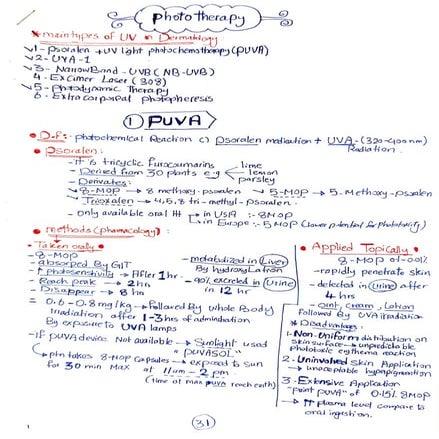 phototherapy
*main types of UV in Dermatology
1- Psoralen + UV light photochemotherapy (PUVA)
2- UVA-1
3- Narrow Band - UVB (NB-UVB)
4- Excimer Laser (308)
5- Photodynamic Therapy
6- Extracorporeal photopheresis
① PUVA
• D.f: photochemical Reaction Psoralen mediation + UVA - (320-400nm)
Radiation.
• Psoralen:
- it is tricyclic furocoumarins
- Derived from 30 plants e.g lime
lemon
parsley
- Derivates:
8-MOP → 8 methoxy-psoralen 5-MOP → 5-Methoxy-psoralen
Trioxalen → 4,5,8 tri-methyl-Psoralen
- only available oral ttt → in USA :- 8MOP
→ in Europe :- 5MOP (lower potential for phototoxicity)
• methods (pharmacology):
• Taken orally
- 8-MOP
- absorbed by GIT
- ↑ photosensitivity → After 1hr
- Reach peak → 2hrs
- Disappear → 8 hs
- metabolized in Liver
By hydroxylation
- 90% excreted in Urine
in 12 hr
= 0.6-0.8mg/kg → Followed By whole Body
irradiation after 1-3hrs of administration
By exposure to UVA lamps
- if PUVA device Not available → Sunlight used
"PUVASOL"
ptn takes 8-MOP capsules → exposed to sun
for 30 min Max at 11am - 2 pm
(time of max PUVA reach earth)
• Applied Topically
8-MOP
- rapidly penetrate skin
- detected in Urine after
4 hrs
- oint, cream, Lotion
Followed By UVA irradiation
* Disadvantages:
1- Non Uniform distribution on
skin surface → unpredictable
phototoxic erythema reaction
2- Uninvolved Skin Application
→ unacceptable hyperpigmentation
3- Extensive Application
"paint PUVA" of 0.15% 8-MOP
→ ↑↑ plasma level compare to
oral ingestion.
31